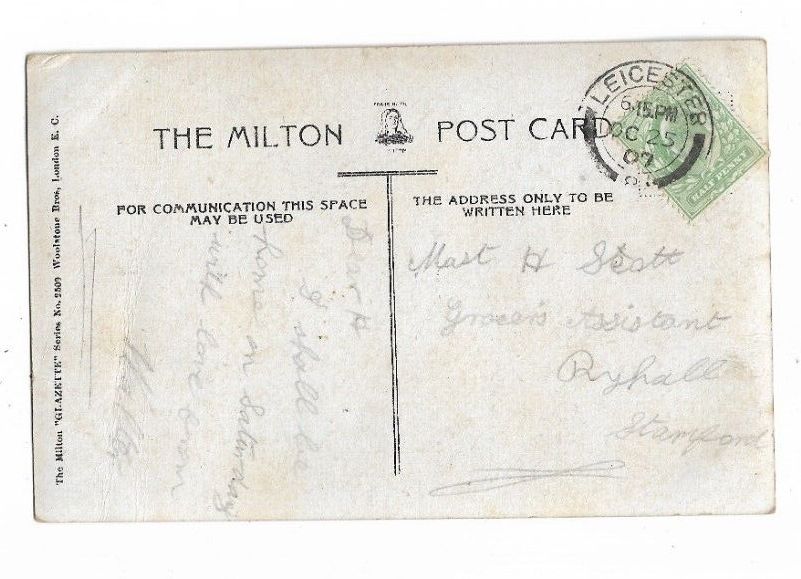 THE MILTON POST CARD
FOR COMMUNICATION THIS SPACE
MAY BE USED
THE ADDRESS ONLY TO BE
WRITTEN HERE
LEICESTER
6.15 PM
OC 25
07
HALFPENNY
Dear H
I shall be
home on Saturday
with love from
Mast H Scott
Grocers Assistant
Ryhall
Stamford
The Milton "GLAZETTE" Series No. 2509 Woolstone Bros, London E. C.